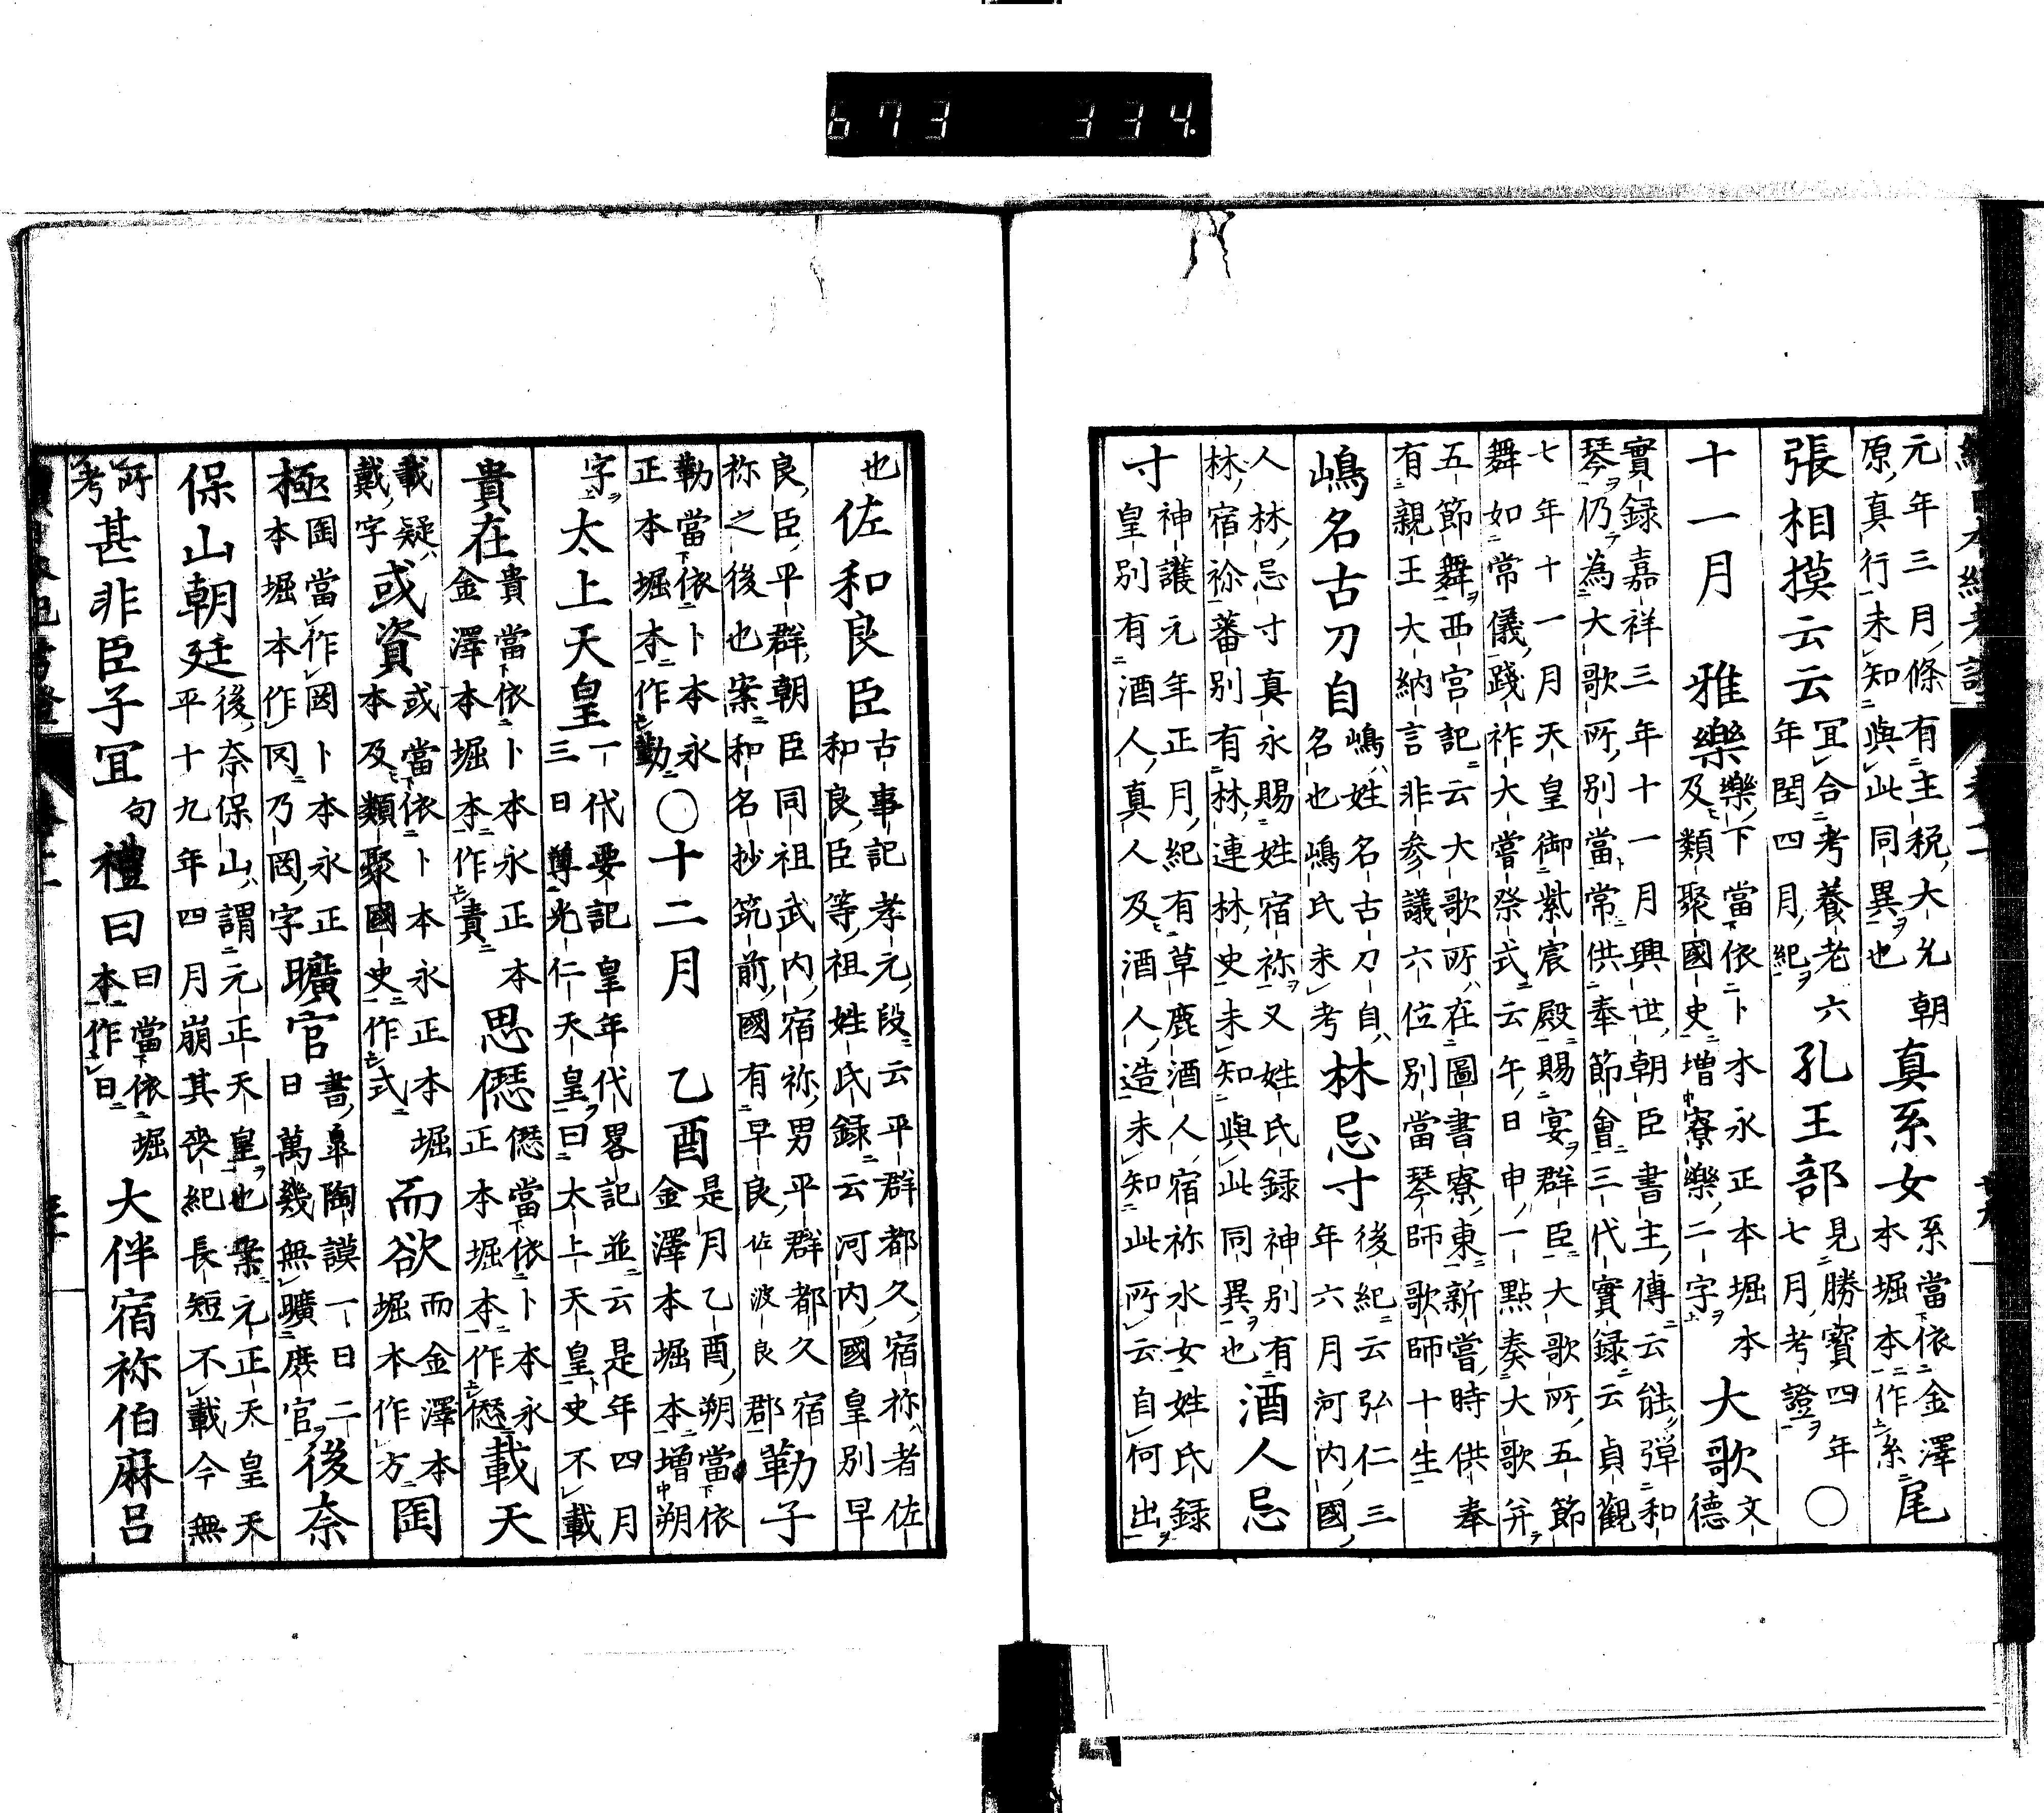 673 334.
元年三月條有主税大允朝
原真行未知與此同異也
真系女
系當依金澤
本堀本作系
尾
張相摸云云
冝合考養老六
年閏四月紀
孔王部
見勝寳四年
七月考證
〇
十一月 雅樂
樂下當依卜本永正本堀本
及類聚國史増寮樂二字
大歌
文
德
實録嘉祥三年十一月興世朝臣書主傳云能彈和
琴仍為大歌所別當常供奉節會三代實録云貞觀
七年十一月天皇御紫宸殿賜宴群臣大歌所五節
舞如常儀踐祚大嘗祭式云午日申一點奏大歌并
五節舞西宮記云大歌所在圖書寮東新嘗時供奉
有親王大納言非参議六位別當琴師歌師十生
嶋名古刀自
嶋姓名古刀自
名也嶋氏未考
林忌寸
後紀云弘仁三
年六月河内國
人林忌寸真永賜姓宿祢又姓氏録神別有
林宿祢蕃別有林連林史未知與此同異也
酒人忌
寸
神護元年正月紀有草鹿酒人宿祢水女姓氏録
皇別有酒人真人及酒人造未知此所云自何出
也
佐和良臣
古事記孝元段云平群都久宿祢者佐
和良臣等祖姓氏録云河内國皇別早
良臣平群朝臣同祖武内宿祢男平群都久宿
祢之後也案和名抄筑前國有早良佐波良郡
勒子
勒當依卜本永
正本堀本作勤
〇十二月 乙酉
是月乙酉朔當依
金澤本堀本増朔
字
太上天皇
一代要記皇年代畧記並云是年四月
三日尊光仁天皇曰太上天皇史不載
貴在
貴當依卜本永正本
金澤本堀本作貴
思㥶
㥶當依卜本永
正本堀本作㥶
載天
載疑
戴字
或資
或當依卜本永正本堀
本及類聚國史作式
而欲
而金澤本
堀本作方
囯
極
囯當作罔卜本永正
本堀本作冈乃罔字
曠官
書皐陶謨一日二
日萬幾無曠庶官
後奈
保山朝廷
後奈保山謂元正天皇也案元正天皇天
平十九年四月崩其喪紀長短不載今無
所
考
甚非臣子冝
句
禮曰
曰當依堀
本作日
大伴宿祢伯麻呂